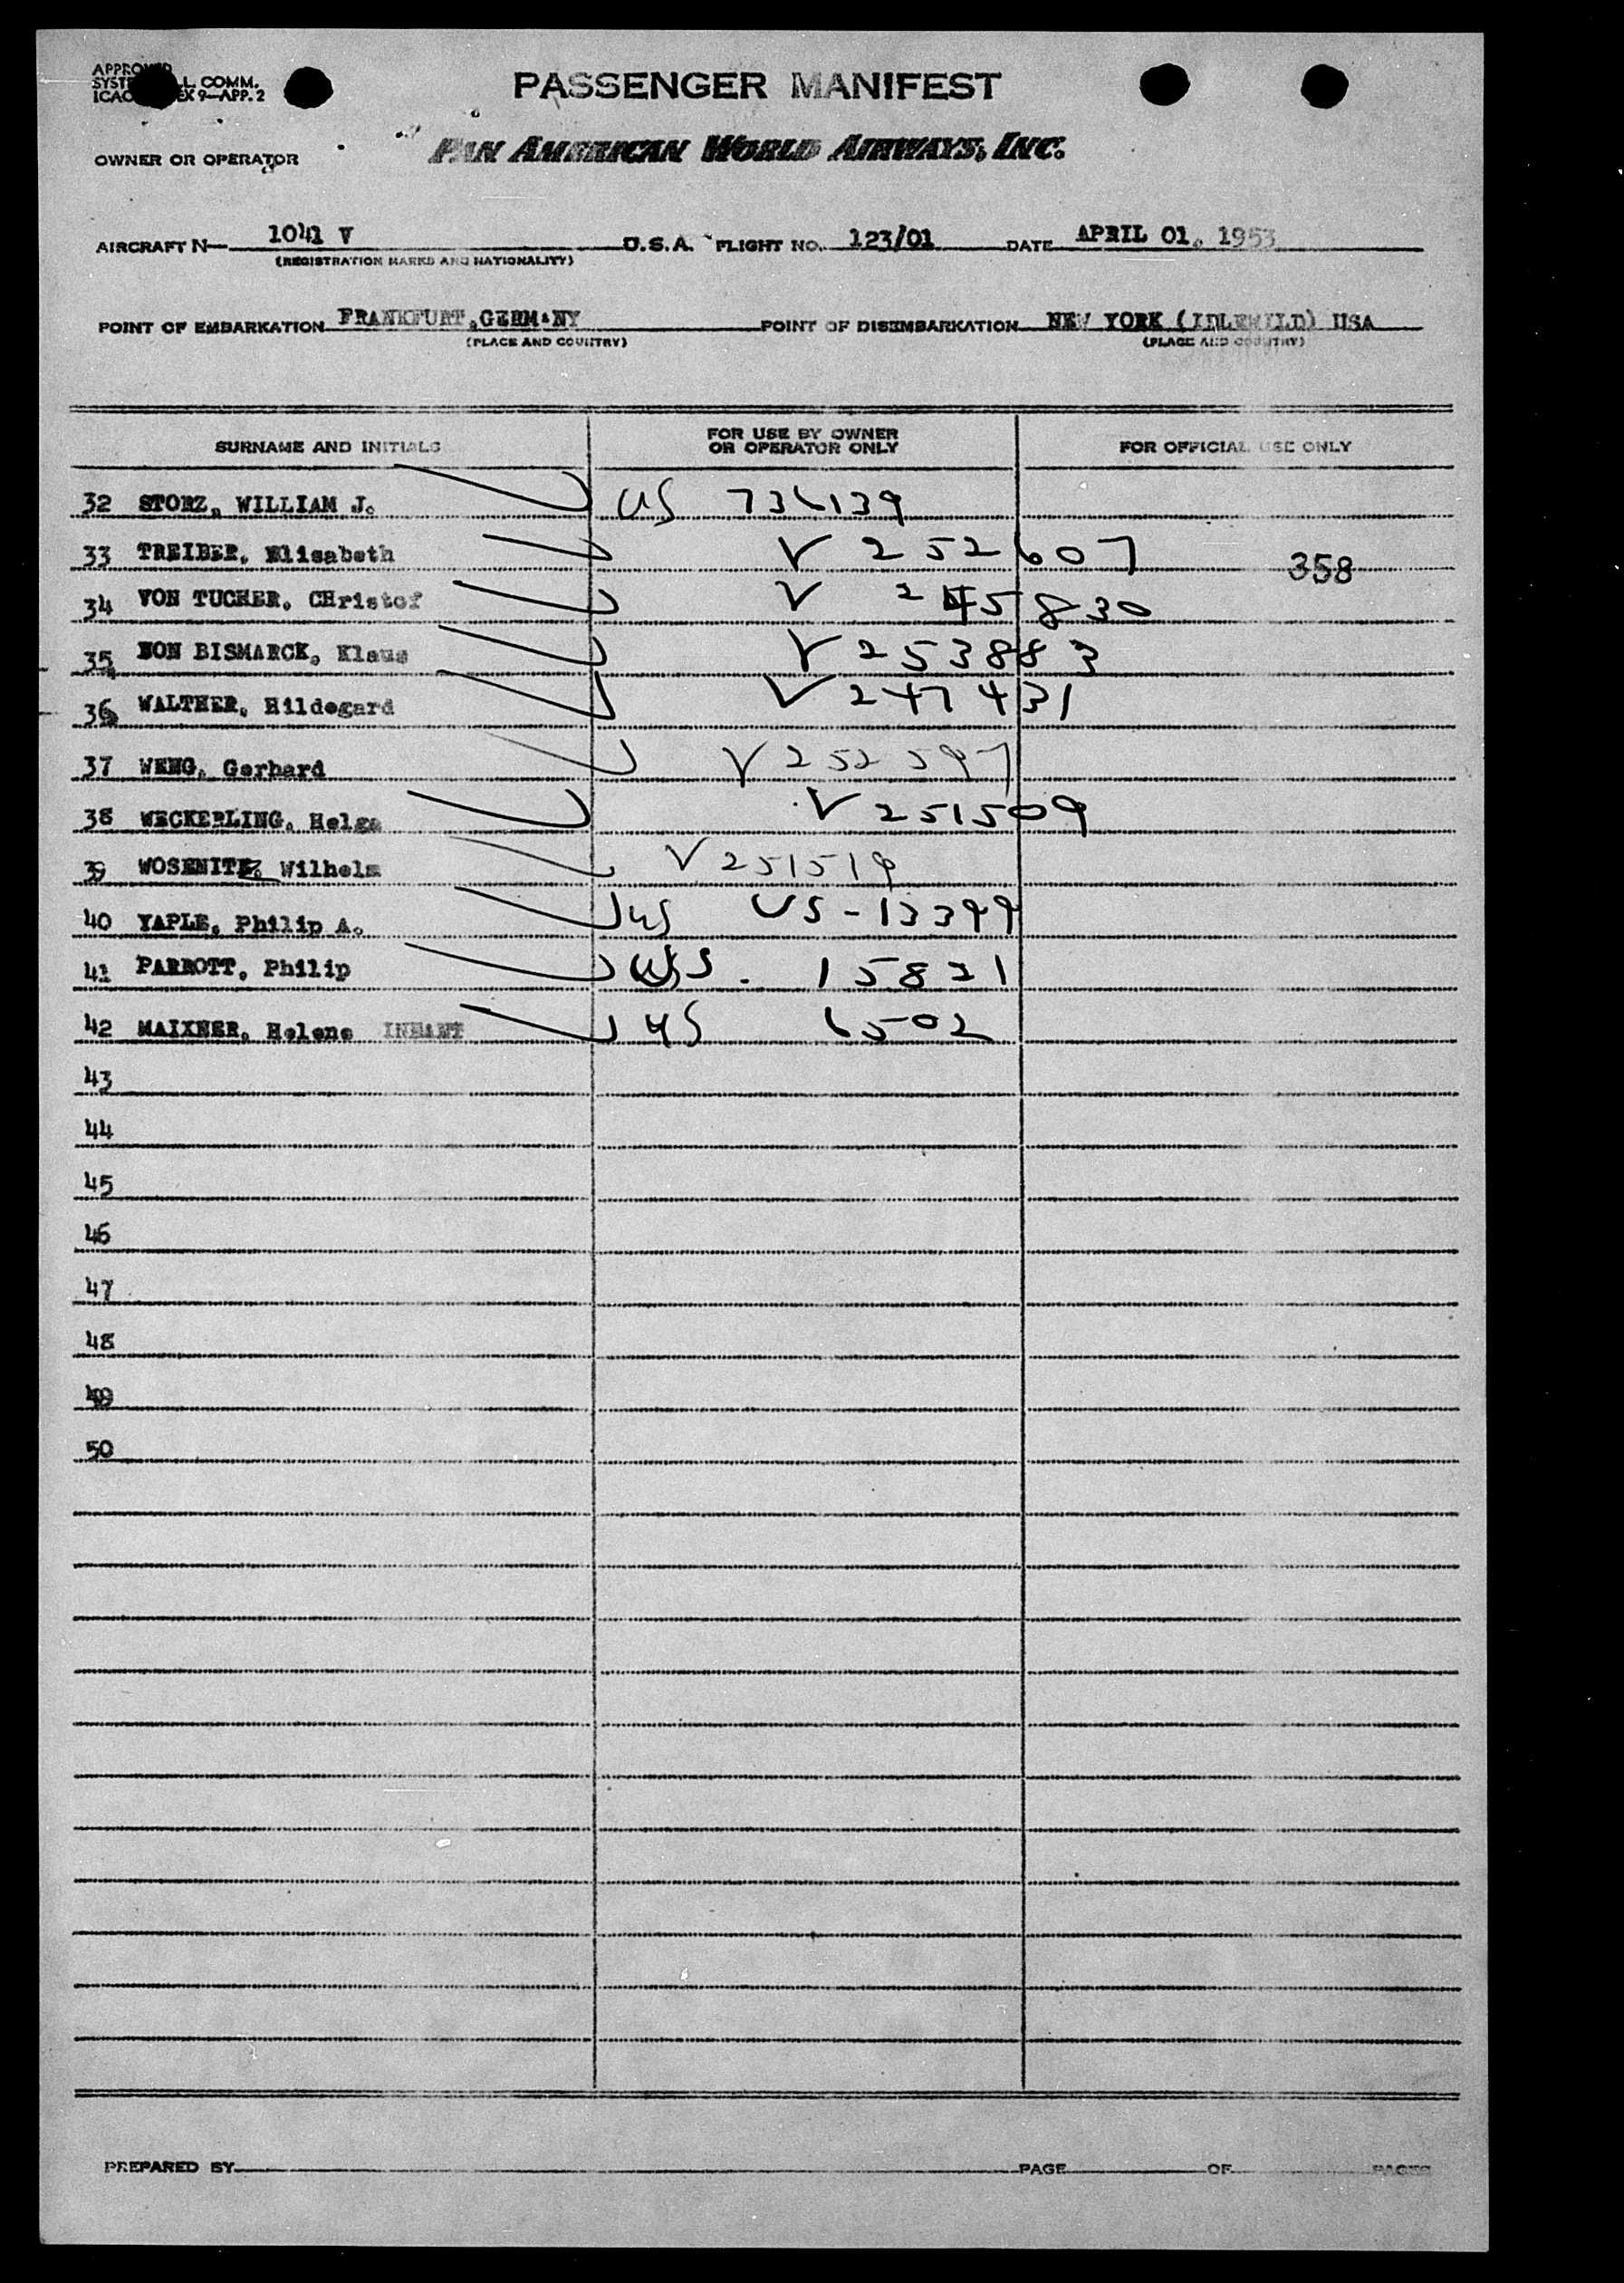 APPROVED
SYST L. COMM.
ICAO EX 9—APP. 2
PASSENGER MANIFEST
OWNER OR OPERATOR PAN AMERICAN WORLD AIRWAYS, INC.
AIRCRAFT N— 1041 V U.S.A. FLIGHT NO. 123/01 DATE APRIL 01. 1953
(REGISTRATION MARKS AND NATIONALITY)
POINT OF EMBARKATION FRANKFURT,GERMANY POINT OF DISEMBARKATION NEW YORK (IDLEWILD) USA
(PLACE AND COUNTRY) (PLACE AND COUNTRY)
SURNAME AND INITIALS FOR USE BY OWNER OR OPERATOR ONLY FOR OFFICIAL USE ONLY
32 STORZ, WILLIAM J. US 736139
33 TREIBER, Elisabeth V 252607 358
34 VON TUCHER, CHristof V 245830
35 NON BISMARCK, Klaus V 253883
36 WALTHER, Hildegard V 247431
37 WENG, Gerhard V 252597
38 WECKERLING, Helga V 251509
39 WOSENITZ, Wilhelm V 251519
40 YAPLE, Philip A. US US-13399
41 PARROTT, Philip US. 15821
42 MAIXNER, Helene INFANT US 6502
43
44
45
46
47
48
49
50
PREPARED BY PAGE OF PAGES